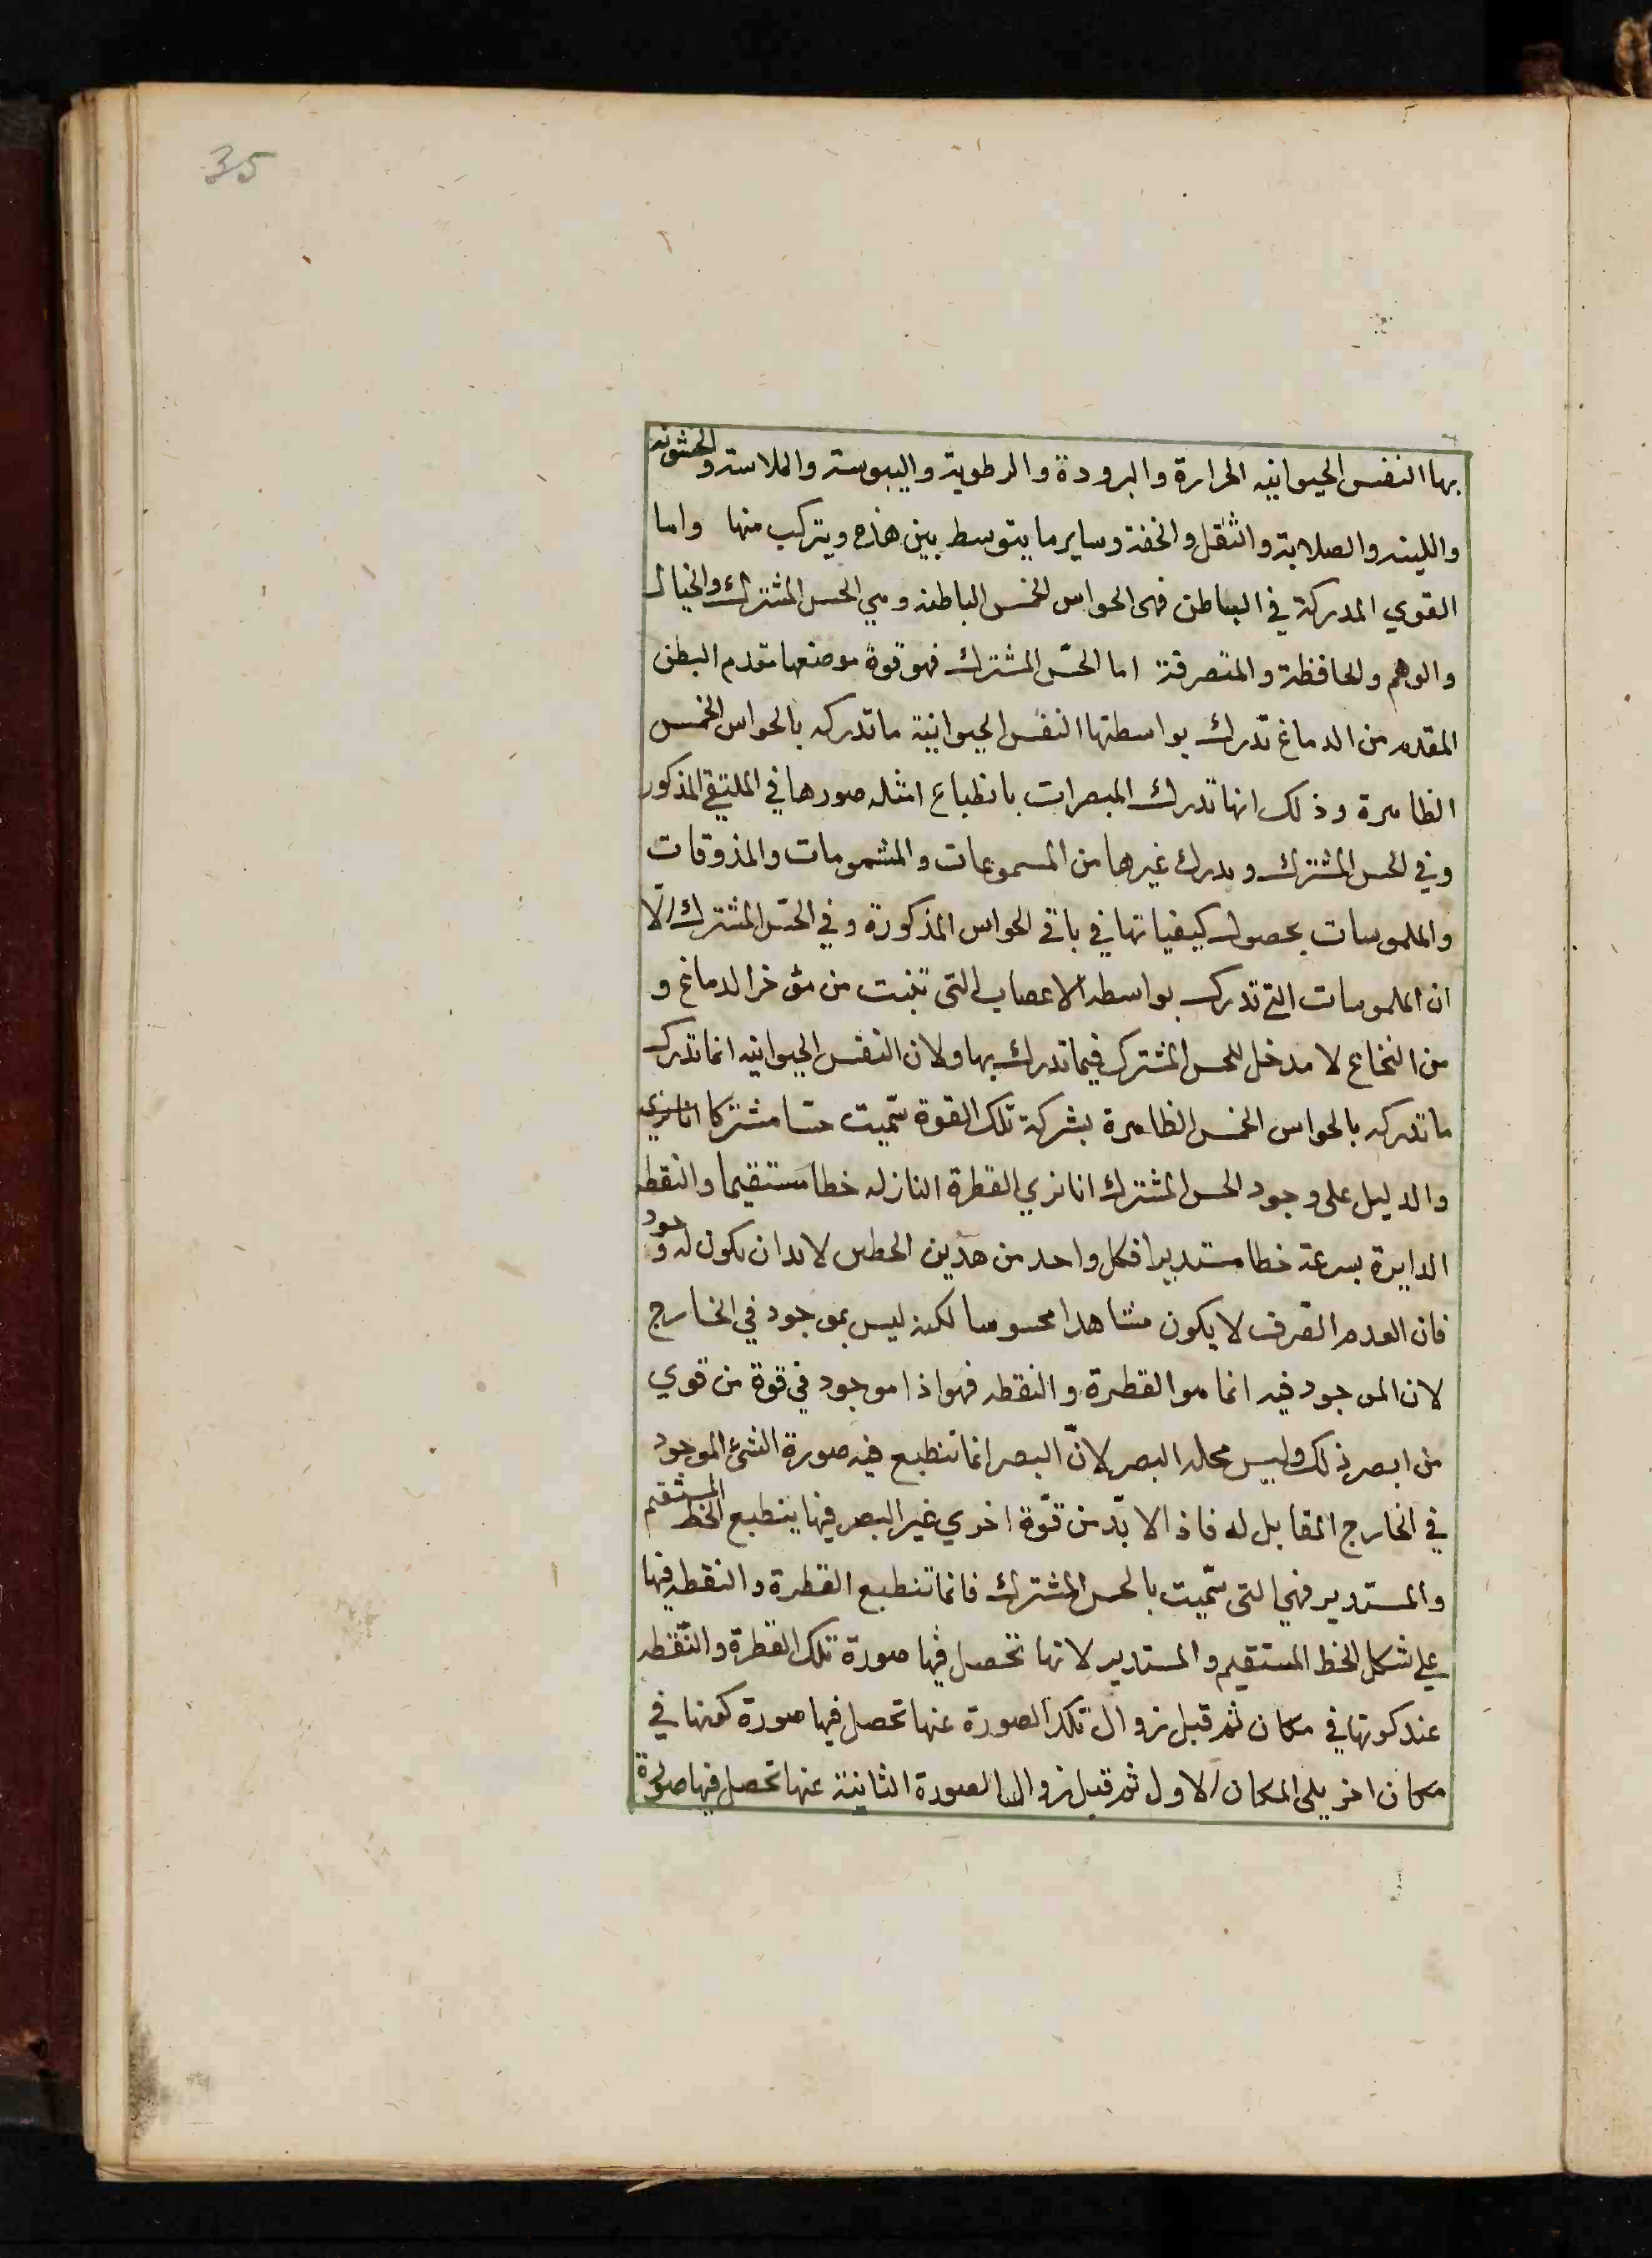 35
بها النفس الحيوانيه الحرارة والبرودة والرطوبة واليبوسة والملاسة والخشونه
واللينه والصلابة والثقل والخفة وساير ما يتوسط بين هذه ويتركب منها واما
القوي المدركة في الباطن فهى الحواس الخمس الباطنه وهي الحس المشترك والخيال
والوهم والحافظة والمتصرفة اما الحسّ المشترك فهو قوة موضعها مقدم البطن
المقدم من الدماغ تدرك بواسطتها النفس الحيوانية ما تدركه بالحواس الخمس
الظاهرة وذلك انها تدرك المبصرات بانطباع امثله صورها في الملتقي المذكور
وفي الحس المشترك وتدرك غيرها من المسموعات والمشمومات والمذوقات
والملموسات بحصول كيفياتها في باقي الحواس المذكورة وفي الحسّ المشترك الّا
ان الملموسات التي تدرك بواسطه الاعصاب التى تنبت من مؤخر الدماغ و
من النخاع لا مدخل للحس المشترك فيما تدرك بها ولان النفس الحيوانيه انما تدرك
ما تدركه بالحواس الخمس الظاهرة بشركة تلك القوة سمّيت حسّا مشتركا انا نري
والدليل على وجود الحس المشترك انا نري القطرة النازله خطا مستقيما والنقطه
الدايرة بسرعة خطا مستديرا فكل واحد من هذين الخطين لا بد ان يكون له وجود
فان العدم الصّرف لا يكون مشاهدا محسوسا لكنه ليس بموجود في الخارج
لان الموجود فيه انما هو القطرة والنقطه فهو اذا موجود في قوة من قوي
من ابصر ذلك وليس محله البصر لانّ البصر انما تنطبع فيه صورة الشئ الموجود
في الخارج المقابل له فاذا لا بدّ من قوّة اخري غير البصر فيها ينطبع الخط المستقيم
والمستدير فهي التى سمّيت بالحس المشترك فانما تنطبع القطرة والنقطه فيها
علي شكل الخط المستقيم والمستدير لانها تحصل فيها صورة تلك القطرة والنّقطه
عند كونها في مكان ثم قبل زوال تلك الصورة عنها تحصل فيها صورة كونها في
مكان اخر يلى المكان الاول ثم قبل زوال الصورة الثانية عنها تحصل فيها صورة